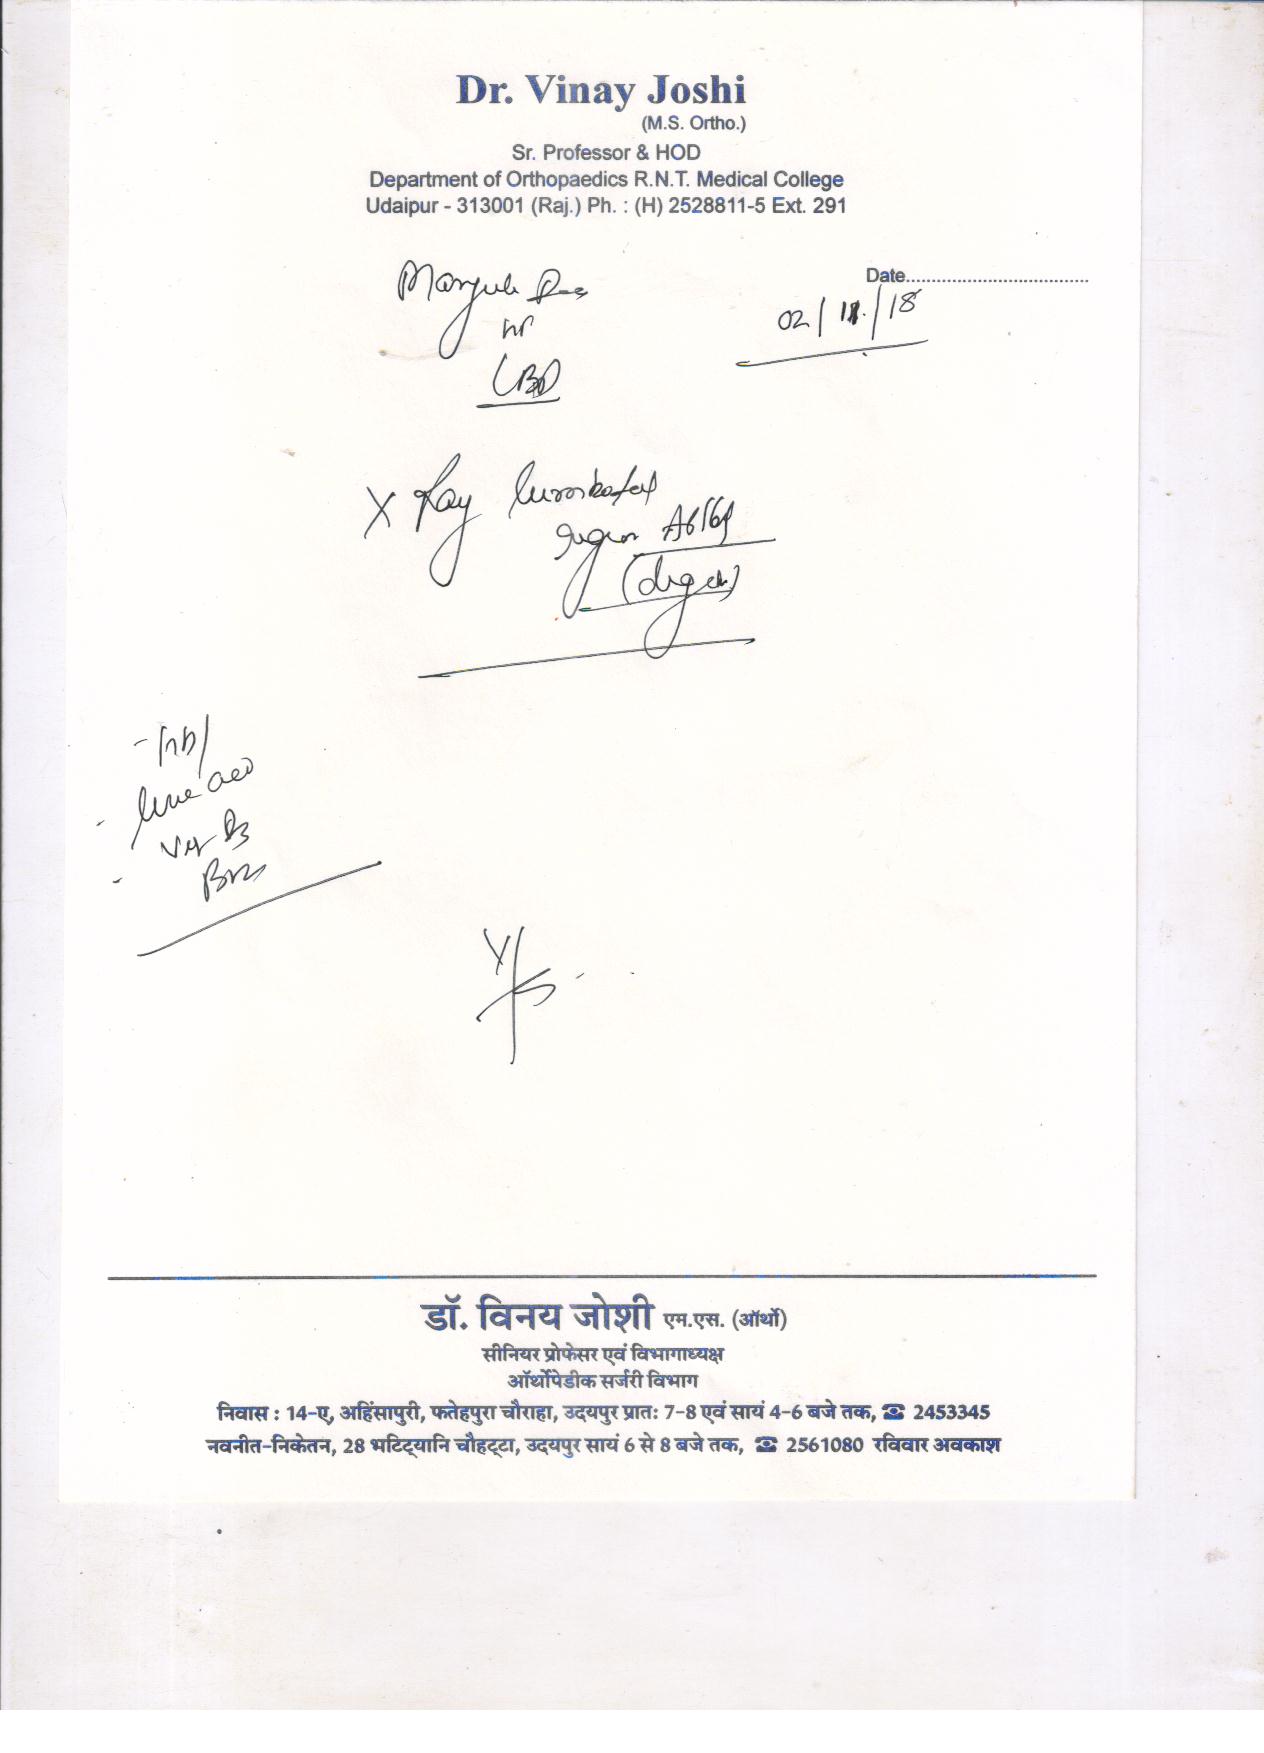 Dr. Vinay Joshi
(M.S. Ortho.)
Sr. Professor & HOD
Department of Orthopaedics R.N.T. Medical College
Udaipur - 313001 (Raj.) Ph. : (H) 2528811-5 Ext. 291
Date..................................
02/11/18
X Ray
Vit D3
B12
डॉ. विनय जोशी एम.एस. (ऑर्थो)
सीनियर प्रोफेसर एवं विभागाध्यक्ष
ऑर्थोपेडीक सर्जरी विभाग
निवास : 14-ए, अहिंसापुरी, फतेहपुरा चौराहा, उदयपुर प्रातः 7-8 एवं सायं 4-6 बजे तक, ☎ 2453345
नवनीत-निकेतन, 28 भटि्यानि चौहट्टा, उदयपुर सायं 6 से 8 बजे तक, ☎ 2561080 रविवार अवकाश